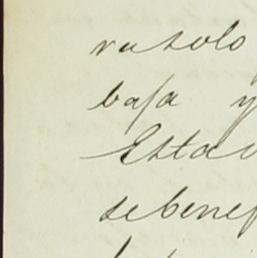 ra solo
baja y
Esta
sebenef